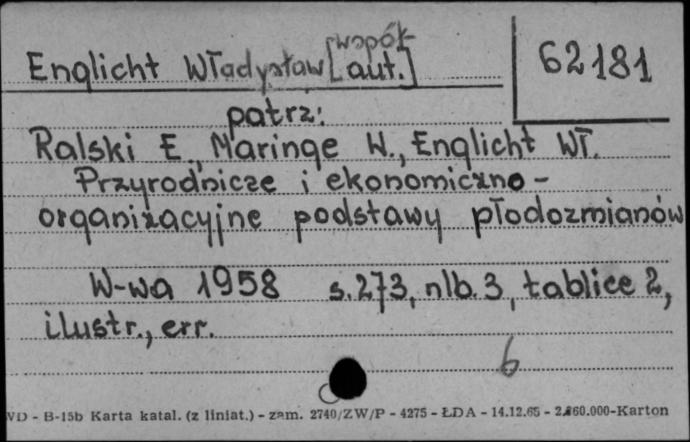 Englicht Władysław [współ-
aut.]
62181
patrz:
Ralski E., Maringe W., Englicht Wł.
Przyrodnicze i ekonomiczno-
organizacyjne podstawy płodozmianów
W-wa 1958 s. 273, nlb. 3, tablice 2,
ilustr., err.
6
WD - B-15b Karta katal. (z liniat.) - zam. 2740/ZW/P - 4275 - ŁDA - 14.12.65 - 2.860.000-Karton